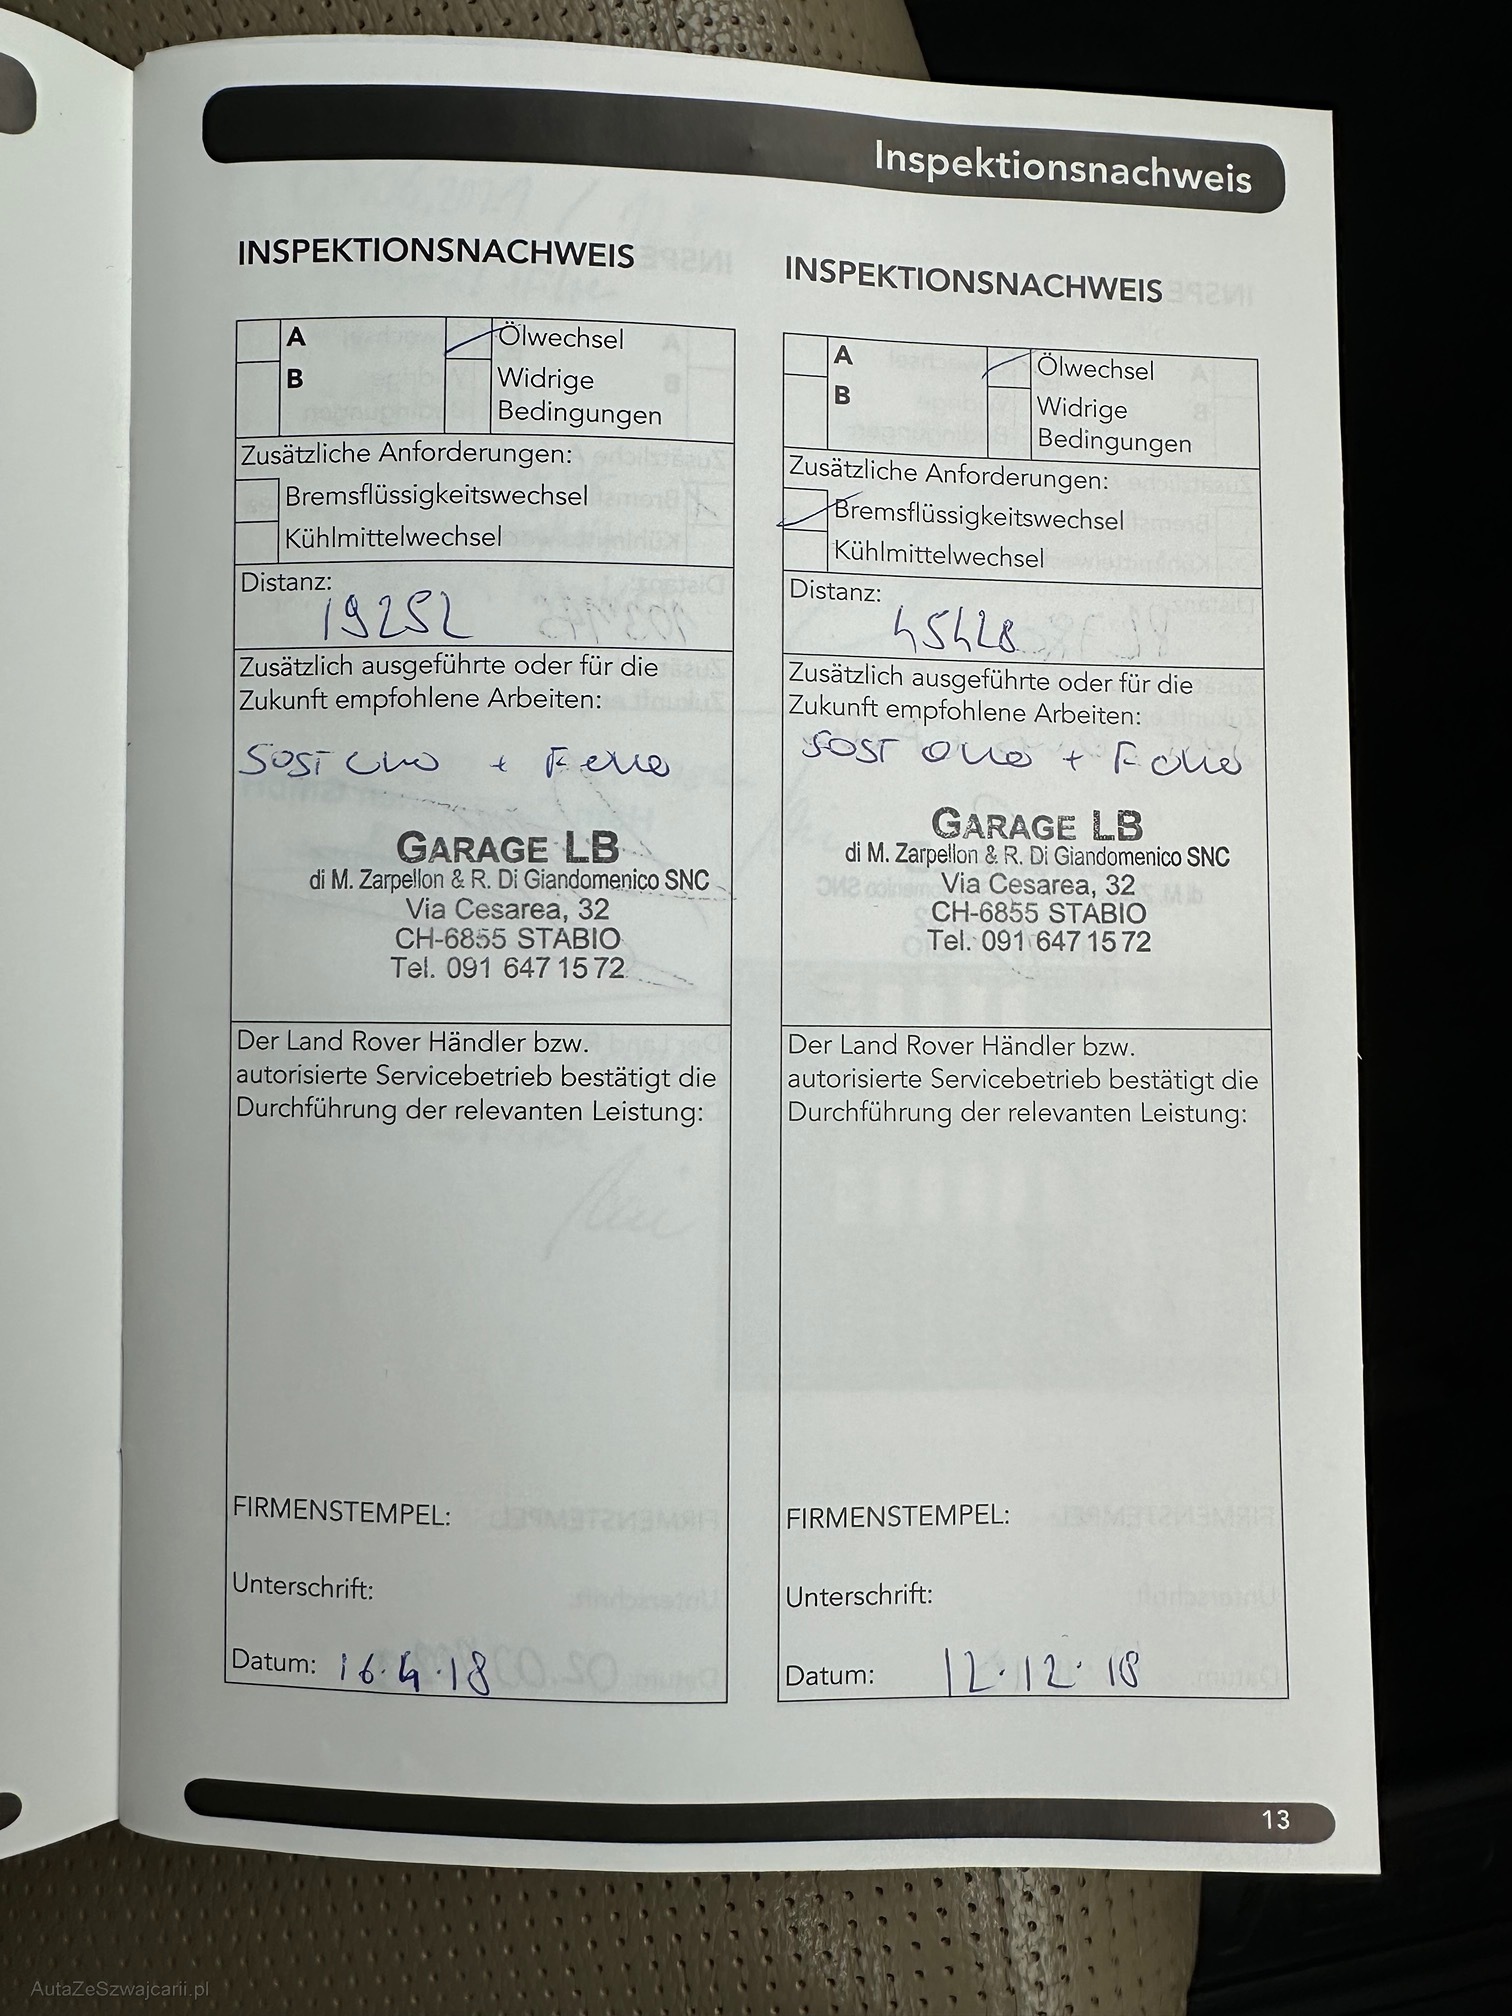 Inspektionsnachweis
INSPEKTIONSNACHWEIS
A
Ölwechsel
B
Widrige
Bedingungen
Zusätzliche Anforderungen:
Bremsflüssigkeitswechsel
Kühlmittelwechsel
Distanz:
19252
Zusätzlich ausgeführte oder für die
Zukunft empfohlene Arbeiten:
SOST +
GARAGE LB
di M. Zarpellon & R. Di Giandomenico SNC
Via Cesarea, 32
CH-6855 STABIO
Tel. 091 647 15 72
Der Land Rover Händler bzw.
autorisierte Servicebetrieb bestätigt die
Durchführung der relevanten Leistung:
FIRMENSTEMPEL:
Unterschrift:
Datum: 16.4.18
INSPEKTIONSNACHWEIS
A
Ölwechsel
B
Widrige
Bedingungen
Zusätzliche Anforderungen:
Bremsflüssigkeitswechsel
Kühlmittelwechsel
Distanz:
45428
Zusätzlich ausgeführte oder für die
Zukunft empfohlene Arbeiten:
SOST +
GARAGE LB
di M. Zarpellon & R. Di Giandomenico SNC
Via Cesarea, 32
CH-6855 STABIO
Tel. 091 647 15 72
Der Land Rover Händler bzw.
autorisierte Servicebetrieb bestätigt die
Durchführung der relevanten Leistung:
FIRMENSTEMPEL:
Unterschrift:
Datum: 12.12.18
13
AutaZeSzwajcarii.pl